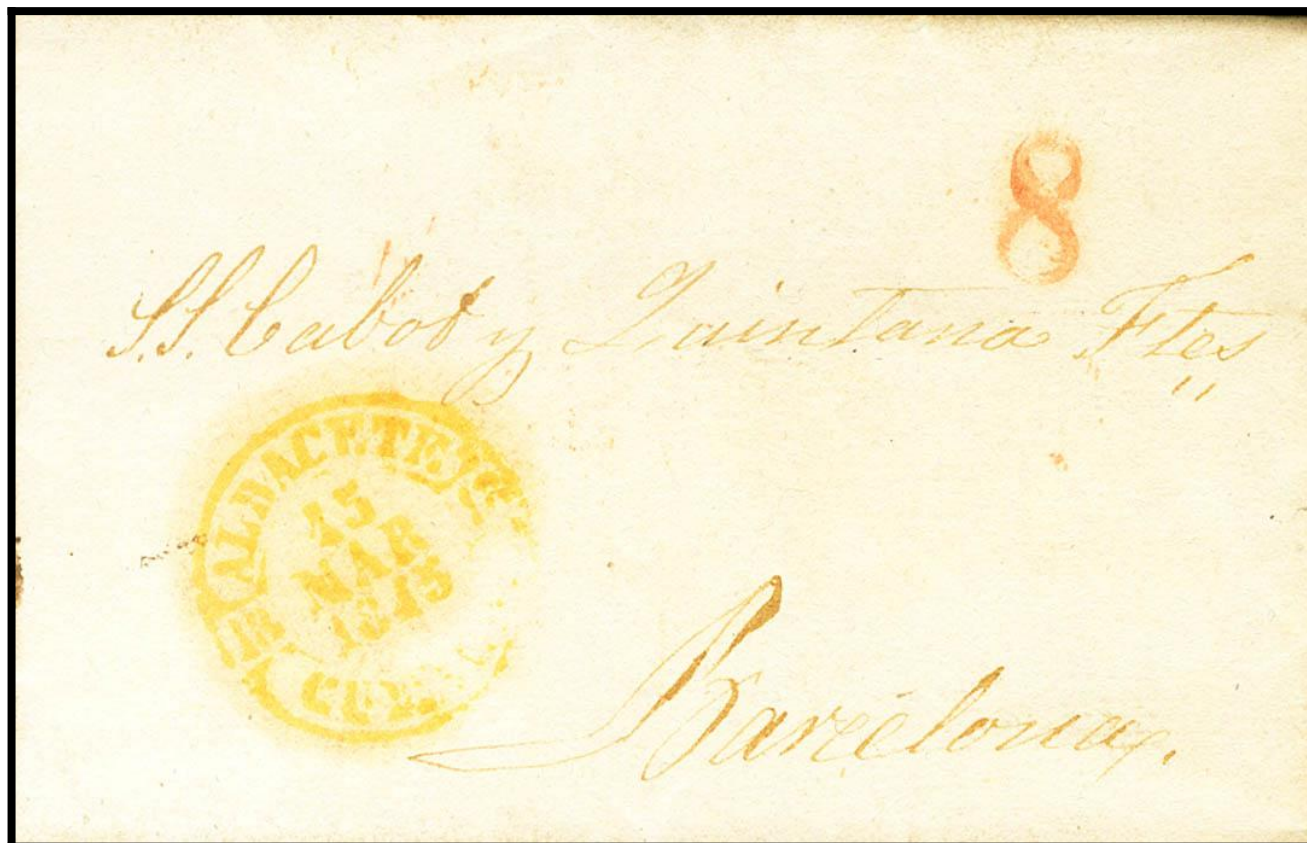 8
S.S. Cabot y Quintana Ftes
ALBACETE
15
MAR
Barcelona.